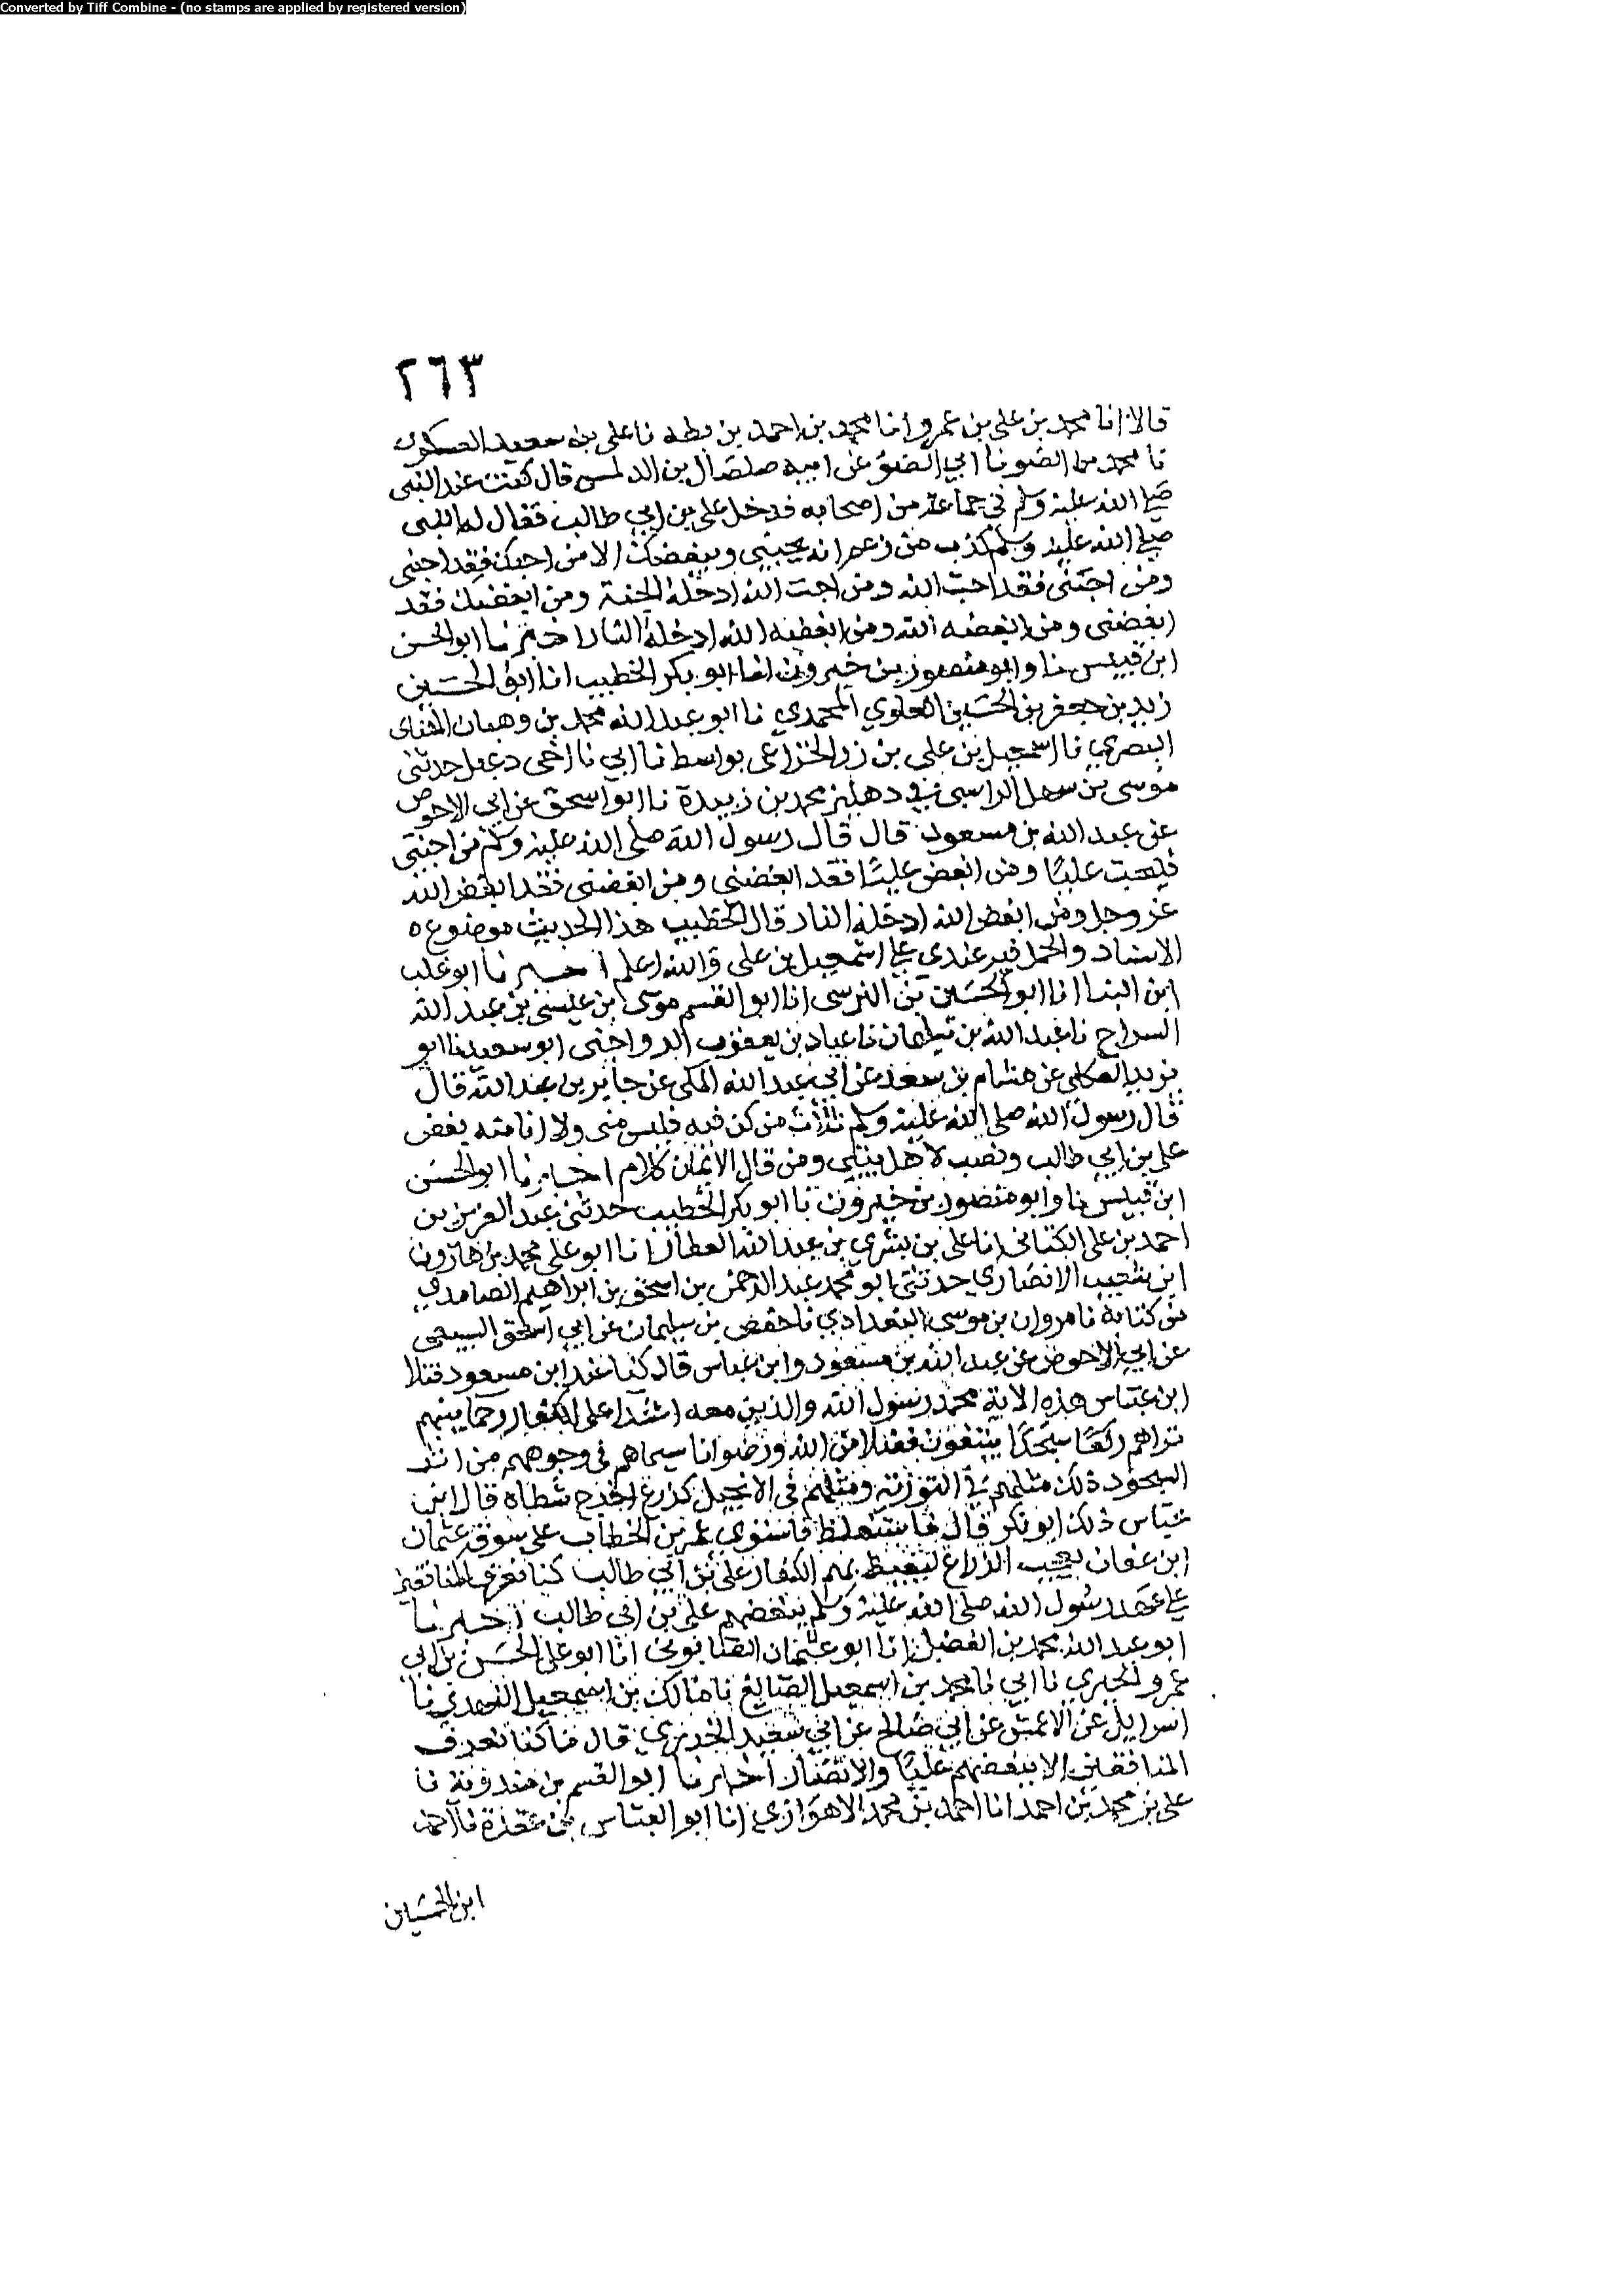 Converted by Tiff Combine - (no stamps are applied by registered version)
٢٦٣
قالا انا محمد بن علي بن عمرو انا محمد بن احمد بن بطه نا علي بن سعيد العسكري
نا محمد بن الضو نا ابي الضو عن ابيه صلصال بن الدلمس قال كنت عند النبي
صلى الله عليه وسلم في جماعة من اصحابه فدخل علي بن ابي طالب فقال له النبي
صلى الله عليه وسلم كذب من زعم انه يحبني ويبغضك الا من احبك فقد احبني
ومن احبني فقد احب الله ومن احب الله ادخله الجنة ومن ابغضك فقد
ابغضني ومن ابغضه الله ومن ابغضه الله ادخله النار اخبرنا ابو الحسن
ابن قبيس نا وابو منصور بن خيرون انا ابو بكر الخطيب انا ابو الحسين
زيد بن جعفر بن الحسين العلوي المحمدي نا ابو عبد الله محمد بن وهبان
البصري نا اسمعيل بن علي بن زر الخزاعي بواسط نا ابي نا اخي دعبل حدثني
موسى بن سهل الراسبي في دهليز محمد بن زبيدة نا ابو اسحق عن ابي الاحوص
عن عبد الله بن مسعود قال قال رسول الله صلى الله عليه وسلم من احبني
فليحب عليا ومن ابغض عليا فقد ابغضني ومن ابغضني فقد ابغض الله
عز وجل ومن ابغض الله ادخله النار قال الخطيب هذا الحديث موضوع ه
الاسناد والحمل فيه عندي على اسمعيل بن علي والله اعلم اخبرنا ابو غلب
ابن البنا انا ابو الحسين بن النرسي انا ابو القسم موسى بن عيسى بن عبد الله
السراج نا عبد الله بن سليمان نا عباد بن يعقوب الدواجني ابو سعيد نا ابو
يزيد العكلي عن هشام بن سعد عن ابي عبد الله المكي عن جابر بن عبد الله قال
قال رسول الله صلى الله عليه وسلم ثلاث من كن فيه فليس مني ولا انا منه بغض
علي بن ابي طالب ونصب لاهل بيتي ومن قال الايمان كلام اخبرنا ابو الحسن
ابن قبيس نا وابو منصور بن خيرون نا ابو بكر الخطيب حدثني عبد العزيز بن
احمد بن علي الكتاني انا علي بن بشري بن عبد الله العطار انا ابو علي محمد بن هارون
ابن شعيب الانصاري حدثني ابو محمد عبد الرحمن بن اسحق بن ابراهيم الصامدي
من كتابه نا مروان بن موسى البغدادي نا حفص بن سليمان عن ابي اسحق السبيعي
عن ابي الاحوص عن عبد الله بن مسعود وابن عباس قال كنا عند ابن مسعود فتلا
ابن عباس هذه الاية محمد رسول الله والذين معه اشدا على الكفار رحما بينهم
تراهم ركعا سجدا يبتغون فضلا من الله ورضوانا سيماهم في وجوههم من اثر
السجود ذلك مثلهم في التورية ومثلهم في الانجيل كزرع اخرج شطاه قال ابن
عباس ذلك ابو بكر قال فاستغلظ فاستوى عمر بن الخطاب على سوقه عثمان
ابن عفان يعجب الزراع ليغيظ بهم الكفار علي بن ابي طالب كنا نعرف المنافقين
على عهد رسول الله صلى الله عليه وسلم ببغضهم علي بن ابي طالب اخبرنا
ابو عبد الله محمد بن الفضل انا ابو عثمان الصابوني انا ابو علي الحسن بن ابي
عمرو الحيري نا ابي نا محمد بن اسمعيل الصايغ نا مالك بن اسمعيل النهدي نا
اسرايل عن الاعمش عن ابي صالح عن ابي سعيد الخدري قال ما كنا نعرف
المنافقين الا ببغضهم عليا والانصار اخبرنا ابو القسم بن مندوية نا
علي بن محمد بن احمد انا احمد بن محمد الاهوازي انا ابو العباس بن عقدة نا احمد
ابن الحسين